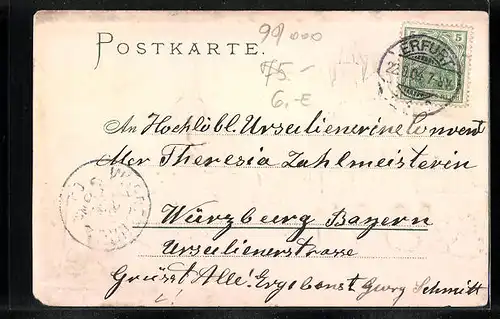 99 000
POSTKARTE.
75.-
6.-E
5 5
ERFURT
An Hochlöbl. Ursulienerinelonvent
Mer Theresia Zahlmeisterin
Würzburg Bayern
Ursulienerstrasse
Grüsst Alle! Ergebenst Georg Schmitt